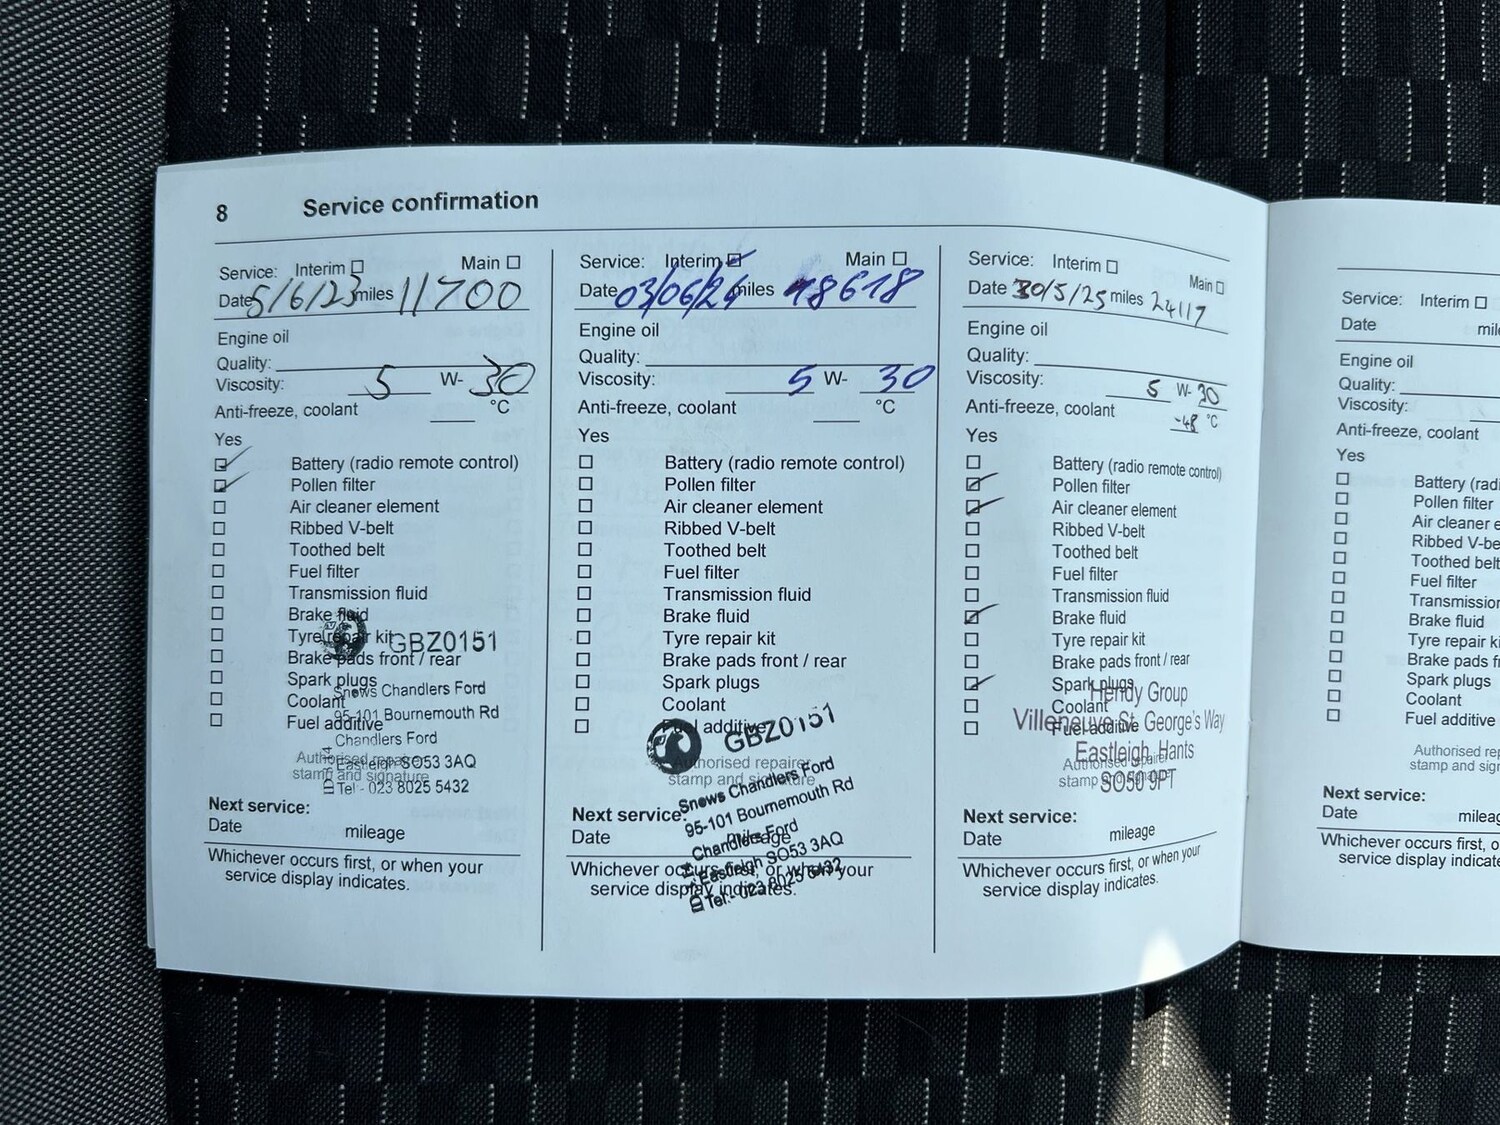 8 Service confirmation
Service: Interim Main
Date 5/6/23 miles 11700
Engine oil
Quality:
Viscosity: 5 W- 30
Anti-freeze, coolant °C
Yes
Battery (radio remote control)
Pollen filter
Air cleaner element
Ribbed V-belt
Toothed belt
Fuel filter
Transmission fluid
Brake fluid
Tyre repair kit
GBZ0151
Brake pads front / rear
Spark plugs
Snows Chandlers Ford
Coolant
95-101 Bournemouth Rd
Fuel additive
Chandlers Ford
Authorised repairer
Eastleigh SO53 3AQ
stamp and signature
Tel:- 023 8025 5432
Next service:
Date mileage
Whichever occurs first, or when your
service display indicates.
Service: Interim Main
Date 03/06/24 miles 18618
Engine oil
Quality:
Viscosity: 5 W- 30
Anti-freeze, coolant °C
Yes
Battery (radio remote control)
Pollen filter
Air cleaner element
Ribbed V-belt
Toothed belt
Fuel filter
Transmission fluid
Brake fluid
Tyre repair kit
Brake pads front / rear
Spark plugs
Coolant
Fuel additive
GBZ0151
Authorised repairer
stamp and signature
Snows Chandlers Ford
95-101 Bournemouth Rd
Chandlers Ford
Eastleigh SO53 3AQ
Tel:- 023 8025 5432
Next service:
Date mileage
Whichever occurs first, or when your
service display indicates.
Service: Interim Main
Date 30/5/25 miles 24117
Engine oil
Quality:
Viscosity: 5 W- 30
Anti-freeze, coolant -48 °C
Yes
Battery (radio remote control)
Pollen filter
Air cleaner element
Ribbed V-belt
Toothed belt
Fuel filter
Transmission fluid
Brake fluid
Tyre repair kit
Brake pads front / rear
Spark plugs
Hendy Group
Coolant
Villeneuve St. George's Way
Fuel additive
Eastleigh, Hants
Authorised repairer
stamp and signature
SO50 9PT
Next service:
Date mileage
Whichever occurs first, or when your
service display indicates.
Service: Interim
Date mil
Engine oil
Quality:
Viscosity:
Anti-freeze, coolant
Yes
Battery (radi
Pollen filter
Air cleaner e
Ribbed V-be
Toothed belt
Fuel filter
Transmission
Brake fluid
Tyre repair ki
Brake pads f
Spark plugs
Coolant
Fuel additive
Authorised rep
stamp and sign
Next service:
Date mileag
Whichever occurs first, o
service display indicate